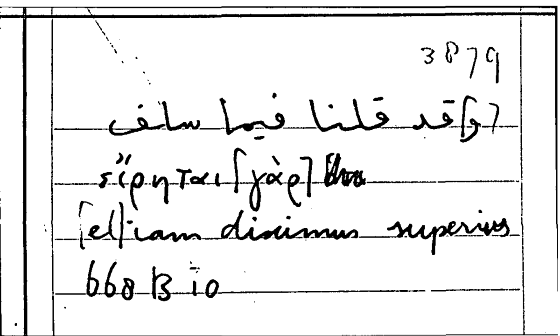 3879
[و]قد قلنا فيما سلف
εἴρηται [γὰρ]
[et] iam diximus superius
668 B 10